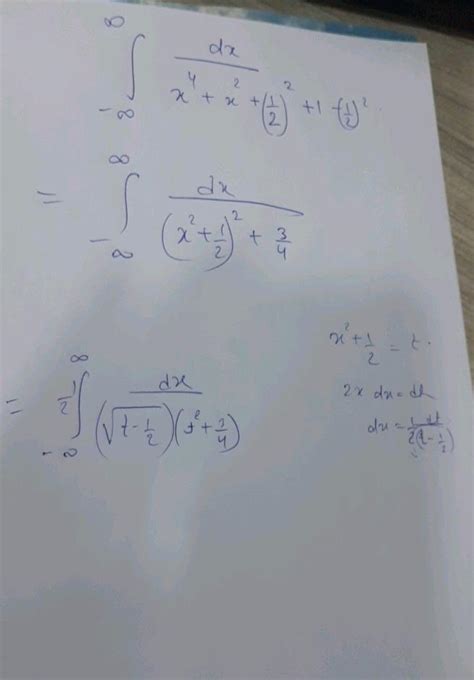 ∞
∫ dx / (x⁴ + x² + (1/2)² + 1 - (1/2)²)
-∞
∞
= ∫ dx / ((x² + 1/2)² + 3/4)
-∞
x² + 1/2 = t.
2x dx = dt
∞
= 1/2 ∫ dx / ((√(t - 1/2)) (t² + 3/4))
-∞